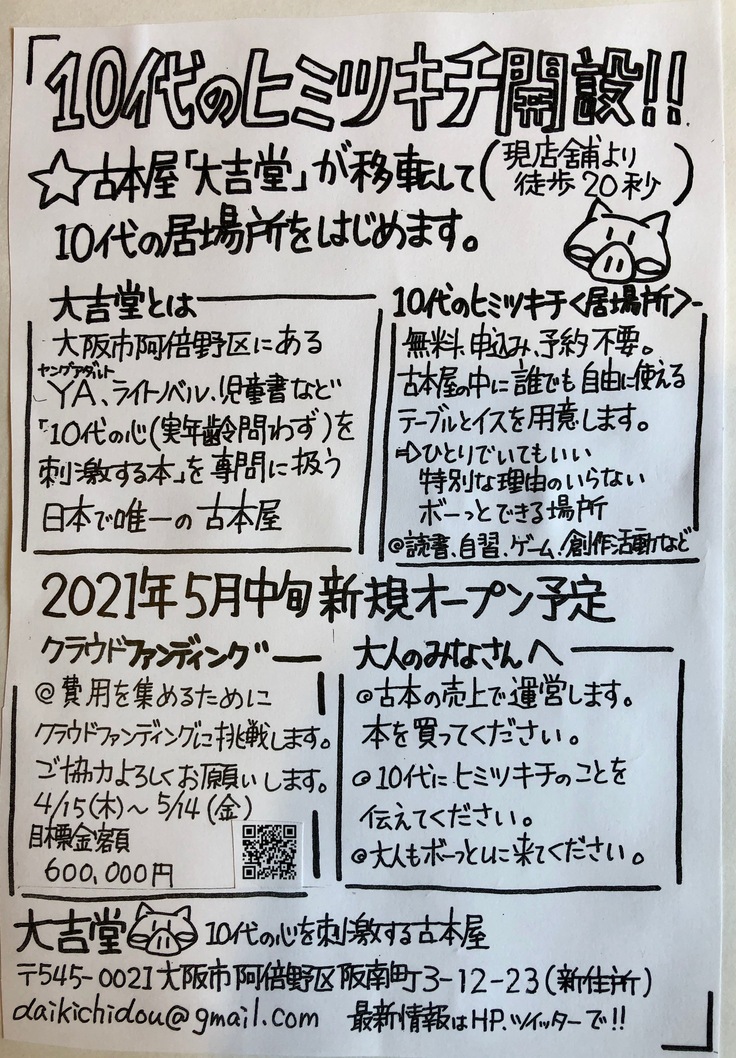 「10代のヒミツキチ開設!!
☆古本屋「大吉堂」が移転して(現店舗より
徒歩20秒)
10代の居場所をはじめます。
大吉堂とは
大阪市阿倍野区にある
ヤングアダルト
YA、ライトノベル、児童書など
「10代の心(実年齢問わず)を
刺激する本」を専門に扱う
日本で唯一の古本屋
10代のヒミツキチ<居場所>
無料、申込み、予約不要。
古本屋の中に誰でも自由に使える
テーブルとイスを用意します。
⇨ひとりでいてもいい
特別な理由のいらない
ボーっとできる場所
◎読書、自習、ゲーム!創作活動など
2021年5月中旬新規オープン予定
クラウドファンディング
◎費用を集めるために
クラウドファンディングに挑戦します。
ご協力よろしくお願いします。
4/15(木)～5/14(金)
目標金額
600,000円
大人のみなさんへ
◎古本の売上で運営します。
本を買ってください。
◎10代にヒミツキチのことを
伝えてください。
◎大人もボーっとしに来てください。
大吉堂 10代の心を刺激する古本屋
〒545-0021大阪市阿倍野区阪南町3-12-23(新住所)
daikichidou@gmail.com 最新情報はHP、ツイッターで!!